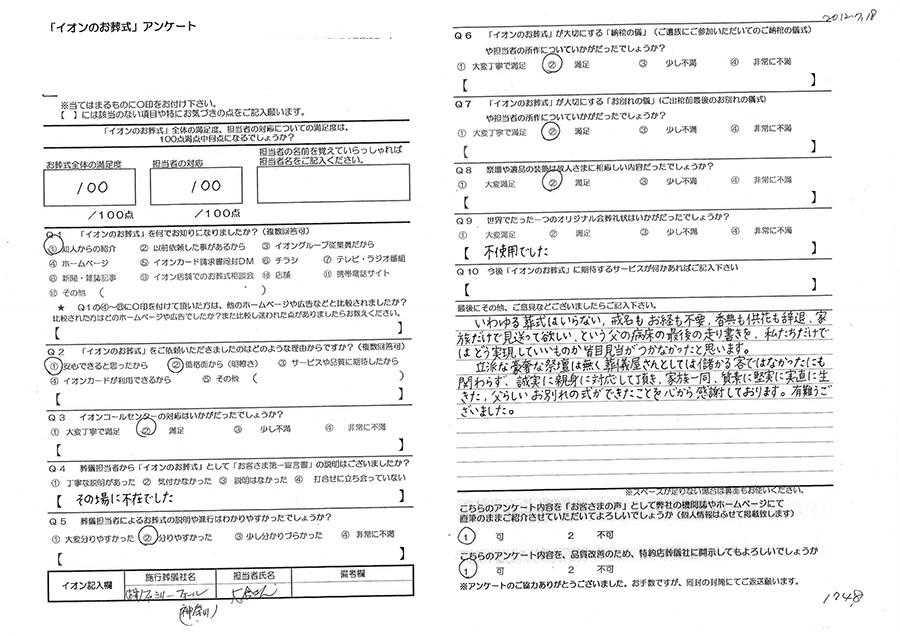 「イオンのお葬式」アンケート
※当てはまるものに○印をお付け下さい。
【　】には該当のない項目や特にお気づきの点をご記入願います。
「イオンのお葬式」全体の満足度、担当者の対応についての満足度は、
100点満点中何点になるでしょうか？
お葬式全体の満足度
担当者の対応
担当者の名前を覚えていらっしゃれば
担当者名をご記入ください。
100
100
／100点
／100点
Q 1　「イオンのお葬式」を何でお知りになりましたか？（複数回答可）
① 知人からの紹介　② 以前依頼した事があるから　③ イオングループ従業員だから
④ ホームページ　⑤ イオンカード請求書同封DM　⑥ チラシ　⑦ テレビ・ラジオ番組
⑧ 新聞・雑誌記事　⑨ イオン店舗でのお葬式相談会　⑩ 店舗　⑪ 携帯電話サイト
⑫ その他　（　　　）
★ Q1の④～⑧に○印を付けて頂いた方は、他のホームページや広告などと比較されましたか？
比較された方はどのホームページや広告でしたか？また比較し迷われた点がありましたらお教えください。
【　　　】
Q 2　「イオンのお葬式」をご依頼いただきましたのはどのような理由からですか？（複数回答可）
① 安もできると思ったから　② 価格面から（明瞭さ）　③ サービスや品質に期待したから
④ イオンカードが利用できるから　⑤ その他　（　　　）
【　　　】
Q 3　イオンコールセンターの対応はいかがだったでしょうか？
① 大変丁寧で満足　② 満足　③ 少し不満　④ 非常に不満
【　　　】
Q 4　葬儀担当者から「イオンのお葬式」として「お客さま第一宣言書」の説明はございましたか？
① 丁寧な説明があった　② 気付かなかった　③ 説明はなかった　④ 打合せに立ち会っていない
【 その場に不在でした 】
Q 5　葬儀担当者によるお葬式の説明や進行はわかりやすかったでしょうか？
① 大変分りやすかった　② 分りやすかった　③ 少し分りづらかった　④ 非常に不満
【　　　】
イオン記入欄
施行葬儀社名
担当者氏名
備考欄
(株)ファミリーフォール
(神奈川)
2012.7.18
Q 6　「イオンのお葬式」が大切にする「納棺の儀」（ご遺族にご参加いただいてのご納棺の儀式）
や担当者の所作についていかがだったでしょうか？
① 大変丁寧で満足　② 満足　③ 少し不満　④ 非常に不満
【　　　】
Q 7　「イオンのお葬式」が大切にする「お別れの儀」（ご出棺前最後のお別れの儀式）
や担当者の所作についていかがだったでしょうか？
① 大変丁寧で満足　② 満足　③ 少し不満　④ 非常に不満
【　　　】
Q 8　祭壇や遺品の装飾は故人さまに相応しい内容だったでしょうか？
① 大変満足　② 満足　③ 少し不満　④ 非常に不満
【　　　】
Q 9　世界でたった一つのオリジナル会葬礼状はいかがだったでしょうか？
① 大変満足　② 満足　③ 少し不満　④ 非常に不満
【 不使用でした 】
Q 10　今後「イオンのお葬式」に期待するサービスが何かあればご記入下さい
【　　　】
最後にその他、ご意見などございましたらご記入下さい。
いわゆる葬式はいらない、戒名もお経も不要、香典も供花も辞退、家
族だけで見送って欲しい、という父の病床の最後の走り書きを、私たちだけで
はどう実現していいものか皆目見当がつかなかったと思います。
立派な豪奢な祭壇は無く葬儀屋さんとしては儲かる客ではなかったにも
関わらず、誠実に親身に対応して頂き、家族一同、質素に堅実に実直に生
きた、父らしいお別れの式ができたことを心から感謝しております。有難うご
ざいました。
※スペースが足りない場合は裏面もお使いください。
こちらのアンケート内容を「お客さまの声」として弊社の機関誌やホームページにて
直筆のままご紹介させていただいてよろしいでしょうか（個人情報はふせて掲載致します）
1　可　2　不可
こちらのアンケート内容を、品質改善のため、特約店葬儀社に開示してもよろしいでしょうか
1　可　2　不可
※アンケートのご協力ありがとうございました。お手数ですが、同封の封筒にてご返送願います。
1748